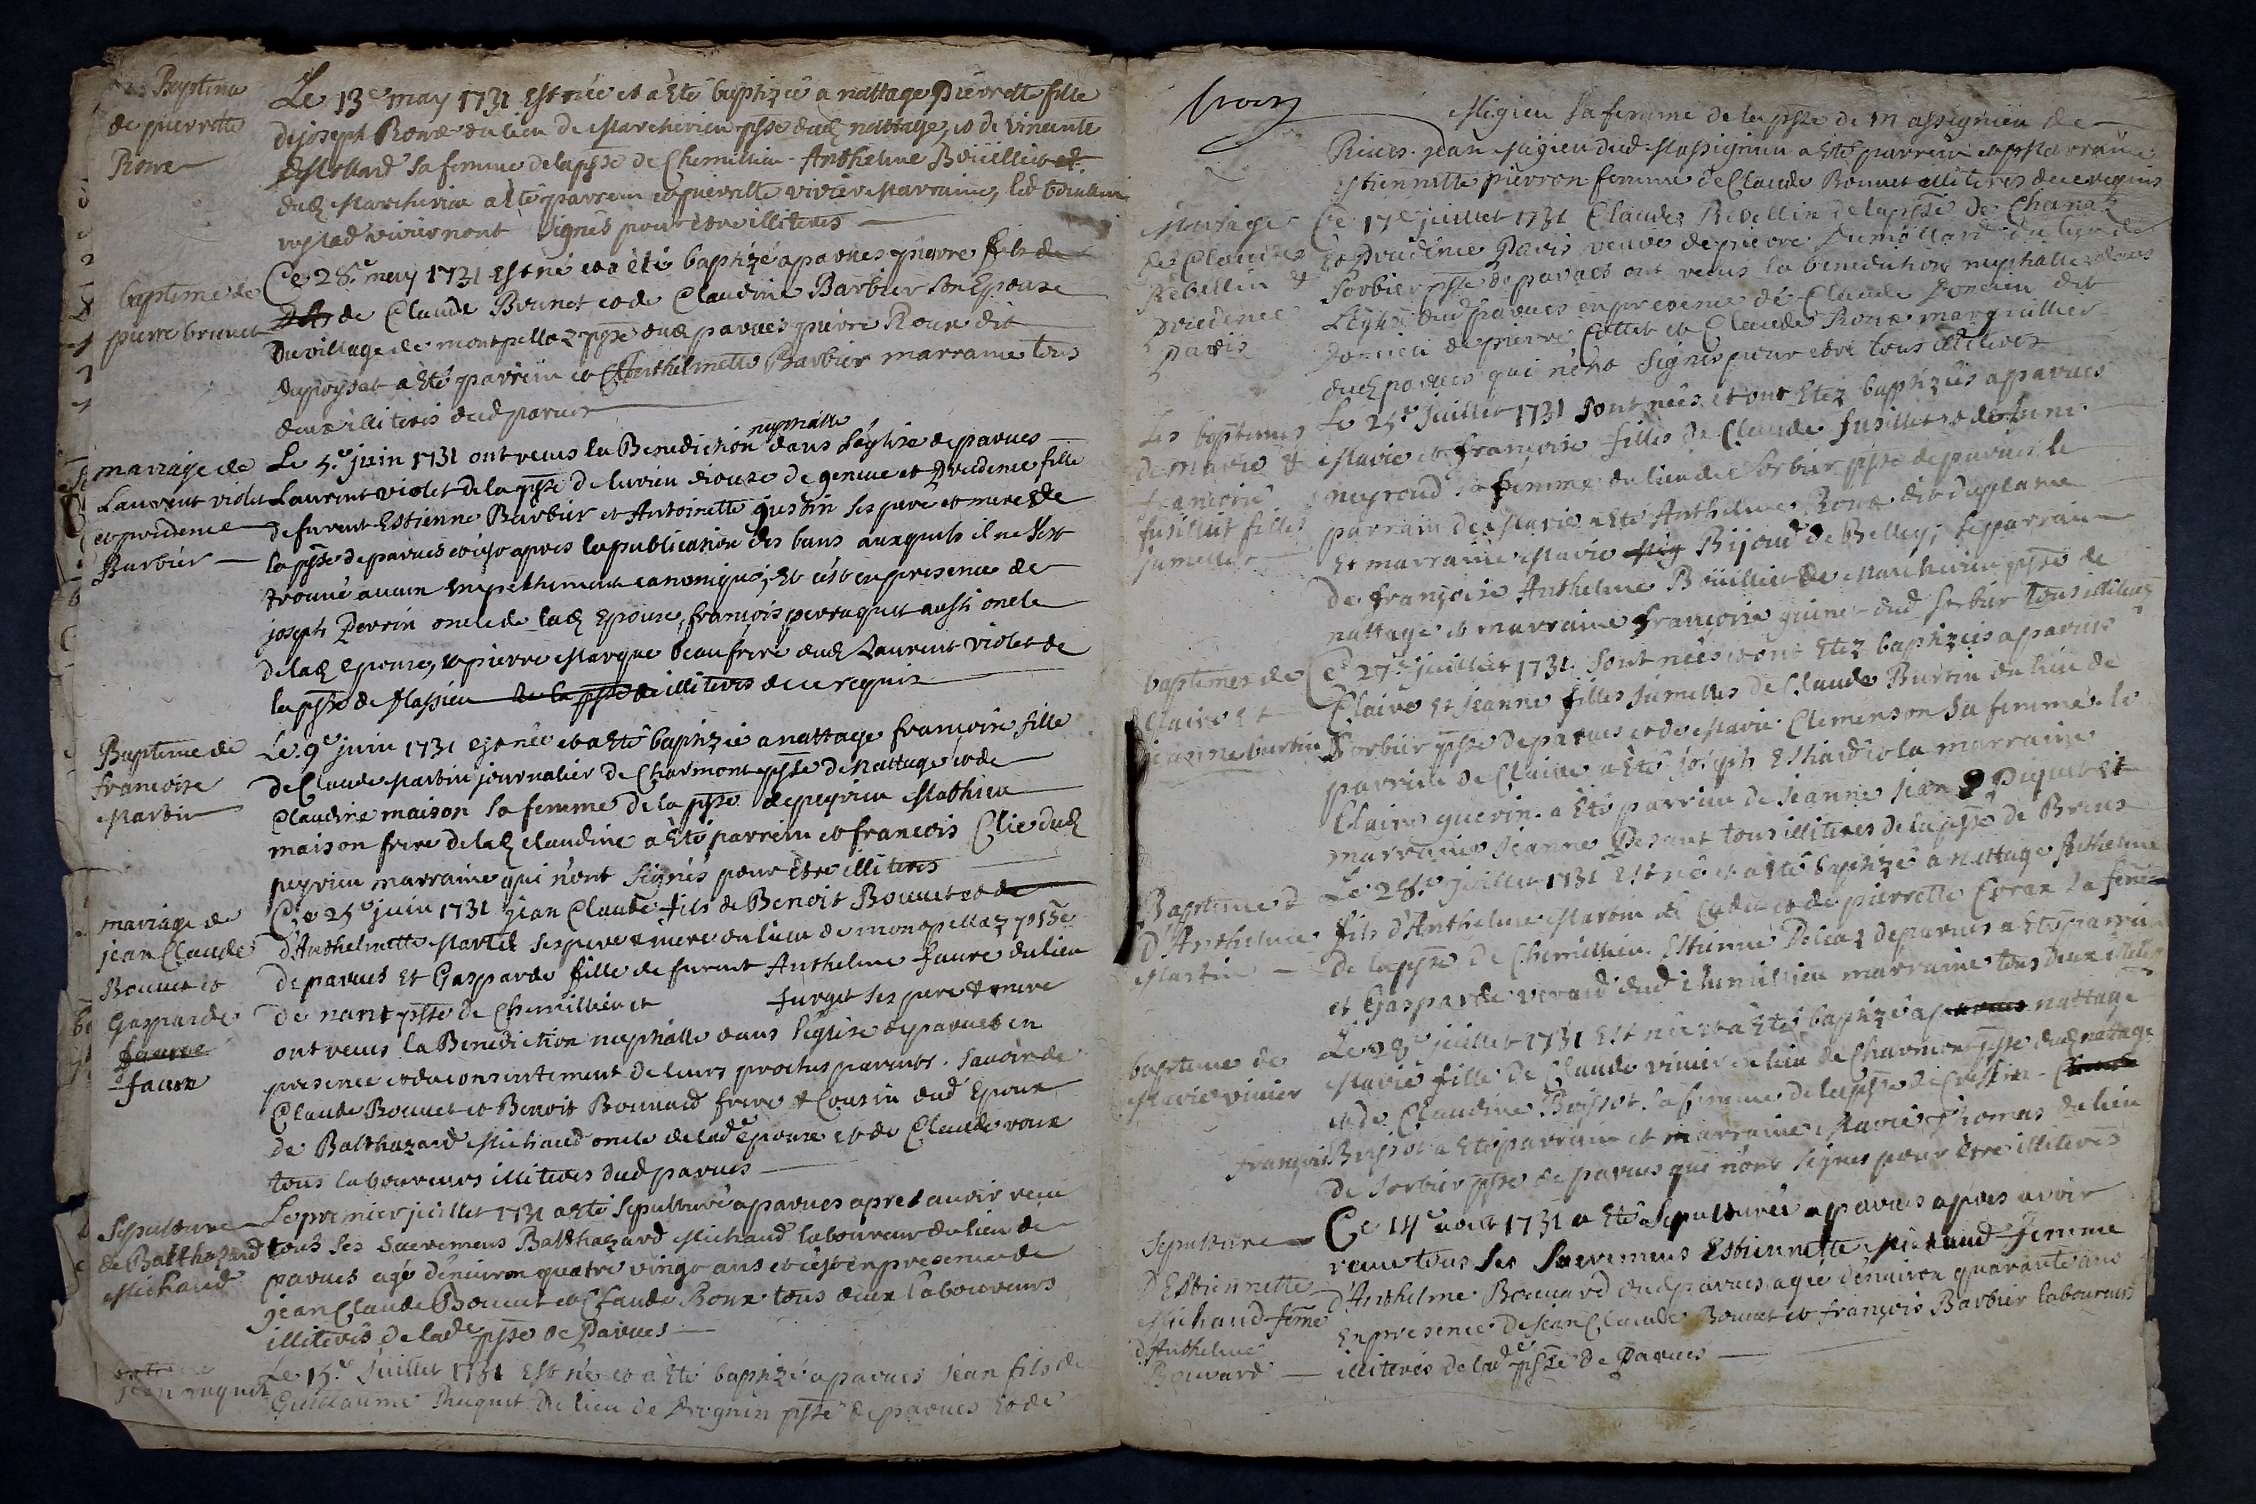 Baptême
de pierrette
Roux
Le 13e may 1731 est née et a été baptizée a nattage Pierrette fille
de joseph Roux du lieu de Marchevieu psse dud nattage, et de vincente
Mollard sa femme de la psse de Chemillieu. Anthelme Boüillet et
dud Marchevieu a été parrein et pierrette vivier Marraine, led boüillet
et lad vivier n'ont signés pour être illiteres
baptême de
pierre brunet
Ce 28e may 1731 est né et a été baptizé a parves pierre fils de
de Claude Brunet et de Claudine Barbier son Epouse
du village de montpellaz psse dud parves pierre Roux dit
dupoysat a été parrein et Anthelmette Barbier marraine tous
deux illiteres dud parves
mariage de
Laurent violet
et prudence
Barbier
nuptialle
Le 5e juin 1731 ont receus la Benediction dans l'église de parves
Laurent violet de la psse de lurieu diouze de geneve et Prudence fille
de furent Estienne Barbier et Antoinette justin ses pere et mere de
la psse de parves et c'est apres la publication des bans auxquels il ne s'est
trouvé aucun empechement canonique; Et c'est en presence de
joseph Perrin oncle de lad Epouse, françois perraquet aussi oncle
de lad epouse, et pierre Marque beaufrere dud Laurent violet de
la psse de Massieu de la psse de illiteres de ce requis
Baptême de
françoise
Martin
Le 9e juin 1731 est née et a été baptizée a nattage françoise fille
de Claude Martin journalier de Charmont psse de Nattage et de
Claudine maison sa femme de la psse de peyrieu Mathieu
maison frere de lad claudine a été parrein et francois Clie dud
peyrieu marraine qui n'ont signés pour être illiteres
mariage de
jean Claude
Bouvet et
Gasparde
faurre
faure
Ce 25e juin 1731 jean Claude fils de Benoit Bouvet et de
d'Anthelmette Martel ses pere & mere du lieu de monpellaz psse
de parves Et Gasparde fille de furent Anthelme faure du lieu
de nant psse de Chemillieu et furget ses pere & mere
ont receus la Benediction nupthialle dans l'église de parves en
presence et du consentement de leurs proches parents. savoir de
Claude Bouvet et Benoit Bouvard frere & Cousin dud Epoux
de Balthazard Michaud oncle de lade epouse et de Claude roux
tous laboureurs illiteres dud parves
Sepulture
de Balthazard
Michaud
Le premier juillet 1731 a été sepulturé a parves apres auvoir receu
tous ses sacremens Balthazard Michaud laboureur du lieu de
parves agé d'environ quatre vingt ans et c'est en presence de
jean Claude Bouvet et Claude Roux tous deux laboureurs
illiteres de lade psse de Parves
jean ruquet
Le 15e juillet 1731 Est né et a été baptizé a parves jean fils de
Guillaume Ruquet du lieu de Brognin psse de parves Et de
Migieu sa femme de la psse de Massignieu de
Rives. jean Migieu dud Massignieu a été parrein et Marraine
Estiennette pierron femme de Claude Bouvet illiteres de ce requis
Mariage
de Claude
Rebellin &
prudence
paris
Ce 17e juillet 1731 Claude Rebellin de la psse de Chanaz
Et Prudence Paris veuve de pierre Dumollard du lieu de
Sorbier psse de parves ont receus la benediction nupthialle dans
L'église dud parves en presence de Claude Poncieu dit
de pierre Collet et Claude Roux marguillier
dud parves qui n'ont signés pour etre tous illiteres
Les baptêmes
de marie &
françoise
fusillet filles
jumelles
Le 25e juillet 1731 sont nées et ont Etez baptizées a parves
Marie et françoise filles de Claude fusillet et de
neyroud sa femme du lieu de Sorbier psse de parves le
parrain de Marie a été Anthelme Roux dit duplane
Et marraine Marie Mig Bijoud de Belley; le parrain
de françoise Anthelme Boüillet de Marchevieu psse de
nattage et marraine françoise guinet dud sorbier tous illiteres
baptêmes de
Claire Et
jeanne burtin
Ce 27e juillet 1731. sont nées et ont Etez baptizées a parves
Claire Et jeanne filles jumelles de Claude Burtin du lieu de
Sorbier psse de parves et de Marie Clemenson sa femme. le
parrein de Claire a été joseph Eshaud et la marraine
Claire guerin. a été parrein de jeanne jean Piquet Et
marraine jeanne Pesant tous illiteres de la psse de Brens
Baptême
D'Anthelme
Martin
Le 28e juillet 1731 Est né et a été baptizé a Nattage Anthelme
fils d'Anthelme Martin et de pierrette Cerax sa feme
de la psse de Chemillieu. Estienne Pelloz de parves a été parrein
et Gasparde veraud dud chemillieu marraine tous deux illiteres
baptême de
Marie vivier
Le 28e juillet 1731 Est née et a été baptizée a parves nattage
Marie fille de Claude vivier du lieu de Charmont psse dud natage
et de Claudine Buissot sa femme de la psse de Cressieu. Claude
françois Buissot a été parrain et marraine Marie Thomas du lieu
de Sorbier psse de parves qui n'ont signés pour être illiteres
Sepulture
D'Estiennette
Michaud feme
d'Anthelme
Bouvard
Ce 14e aout 1731 a été sepulturée a parves apres avoir
receu tous ses sacremens Estiennette Michaud femme
d'Anthelme Bouvard dud parves agée d'environ quarante ans
En presence de jean Claude Bouvet et françois Barbier laboureurs
illiteres de lade psse de Parves